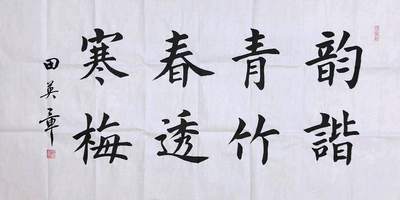 韵諧
青竹
春透
寒梅
田英章